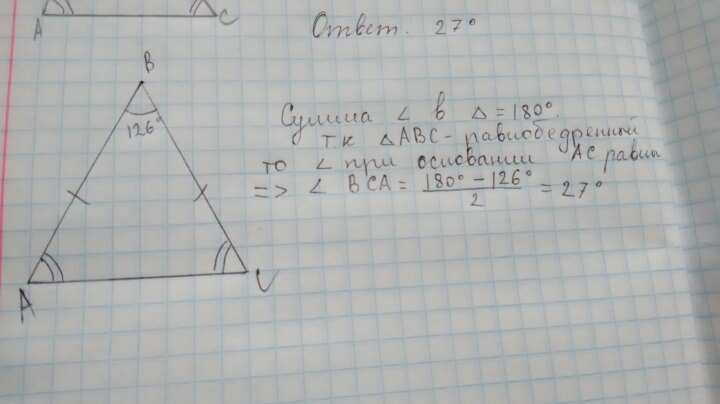 A C
Ответ. 27°
B
126°
Сумма ∠ в △ = 180°.
т.к △ABC - равнобедренный
то ∠ при основании AC равны
=> ∠ BCA = (180° - 126°)/2 = 27°
A C